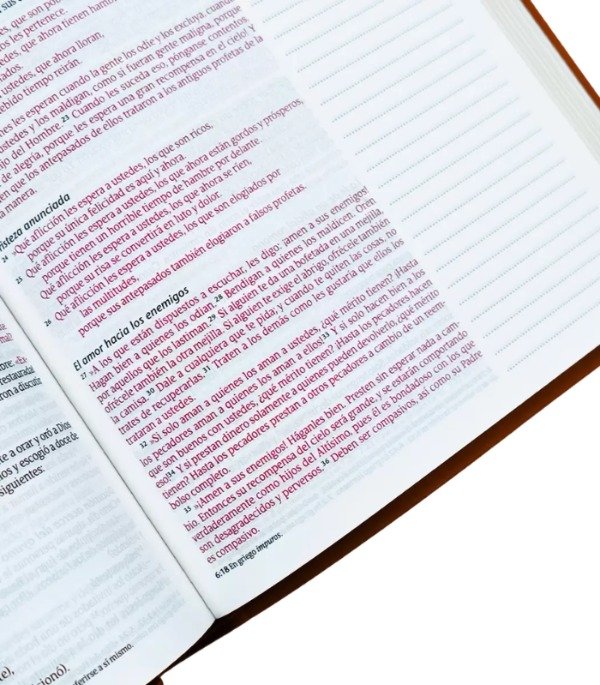 ore:
restauradas
ron a discutir
te a orar y oró a Dios
os y escogió a doce de
siguientes:
e),
ionó).
ferirse a sí mismo.
les pertenece.
edes, que ahora tienen
ados.
ustedes, que ahora lloran,
ebido tiempo reirán.
nes les esperan cuando la gente los odie y los excluya, cuando
ustedes y los maldigan, como si fueran gente maligna, porque
jo del Hombre. 23 Cuando les suceda eso, pónganse contentos.
de alegría, porque les espera una gran recompensa en el cielo! Y
en que los antepasados de ellos trataron a los antiguos profetas de la
a manera.
risteza anunciada
24 »Qué aflicción les espera a ustedes, los que son ricos,
porque su única felicidad es aquí y ahora.
25 Qué aflicción les espera a ustedes, los que ahora están gordos y prósperos,
porque tienen un horrible tiempo de hambre por delante.
Qué aflicción les espera a ustedes, los que ahora se ríen,
porque su risa se convertirá en luto y dolor.
26 Qué aflicción les espera a ustedes, los que son elogiados por
las multitudes,
porque sus antepasados también elogiaron a falsos profetas.
El amor hacia los enemigos
27 »A los que están dispuestos a escuchar, les digo: ¡amen a sus enemigos!
Hagan bien a quienes los odian. 28 Bendigan a quienes los maldicen. Oren
por aquellos que los lastiman. 29 Si alguien te da una bofetada en una mejilla,
ofrécele también la otra mejilla. Si alguien te exige el abrigo, ofrécele también
la camisa. 30 Dale a cualquiera que te pida; y cuando te quiten las cosas, no
trates de recuperarlas. 31 Traten a los demás como les gustaría que ellos los
trataran a ustedes.
32 »Si solo aman a quienes los aman a ustedes, ¿qué mérito tienen? ¡Hasta
los pecadores aman a quienes los aman a ellos! 33 Y si solo hacen bien a los
que son buenos con ustedes, ¿qué mérito tienen? ¡Hasta los pecadores hacen
eso! 34 Y si prestan dinero solamente a quienes pueden devolverlo, ¿qué mérito
tienen? Hasta los pecadores prestan a otros pecadores a cambio de un reem-
bolso completo.
35 »¡Amen a sus enemigos! Háganles bien. Presten sin esperar nada a cam-
bio. Entonces su recompensa del cielo será grande, y se estarán comportando
verdaderamente como hijos del Altísimo, pues él es bondadoso con los que
son desagradecidos y perversos. 36 Deben ser compasivos, así como su Padre
es compasivo.
6:18 En griego impuros.